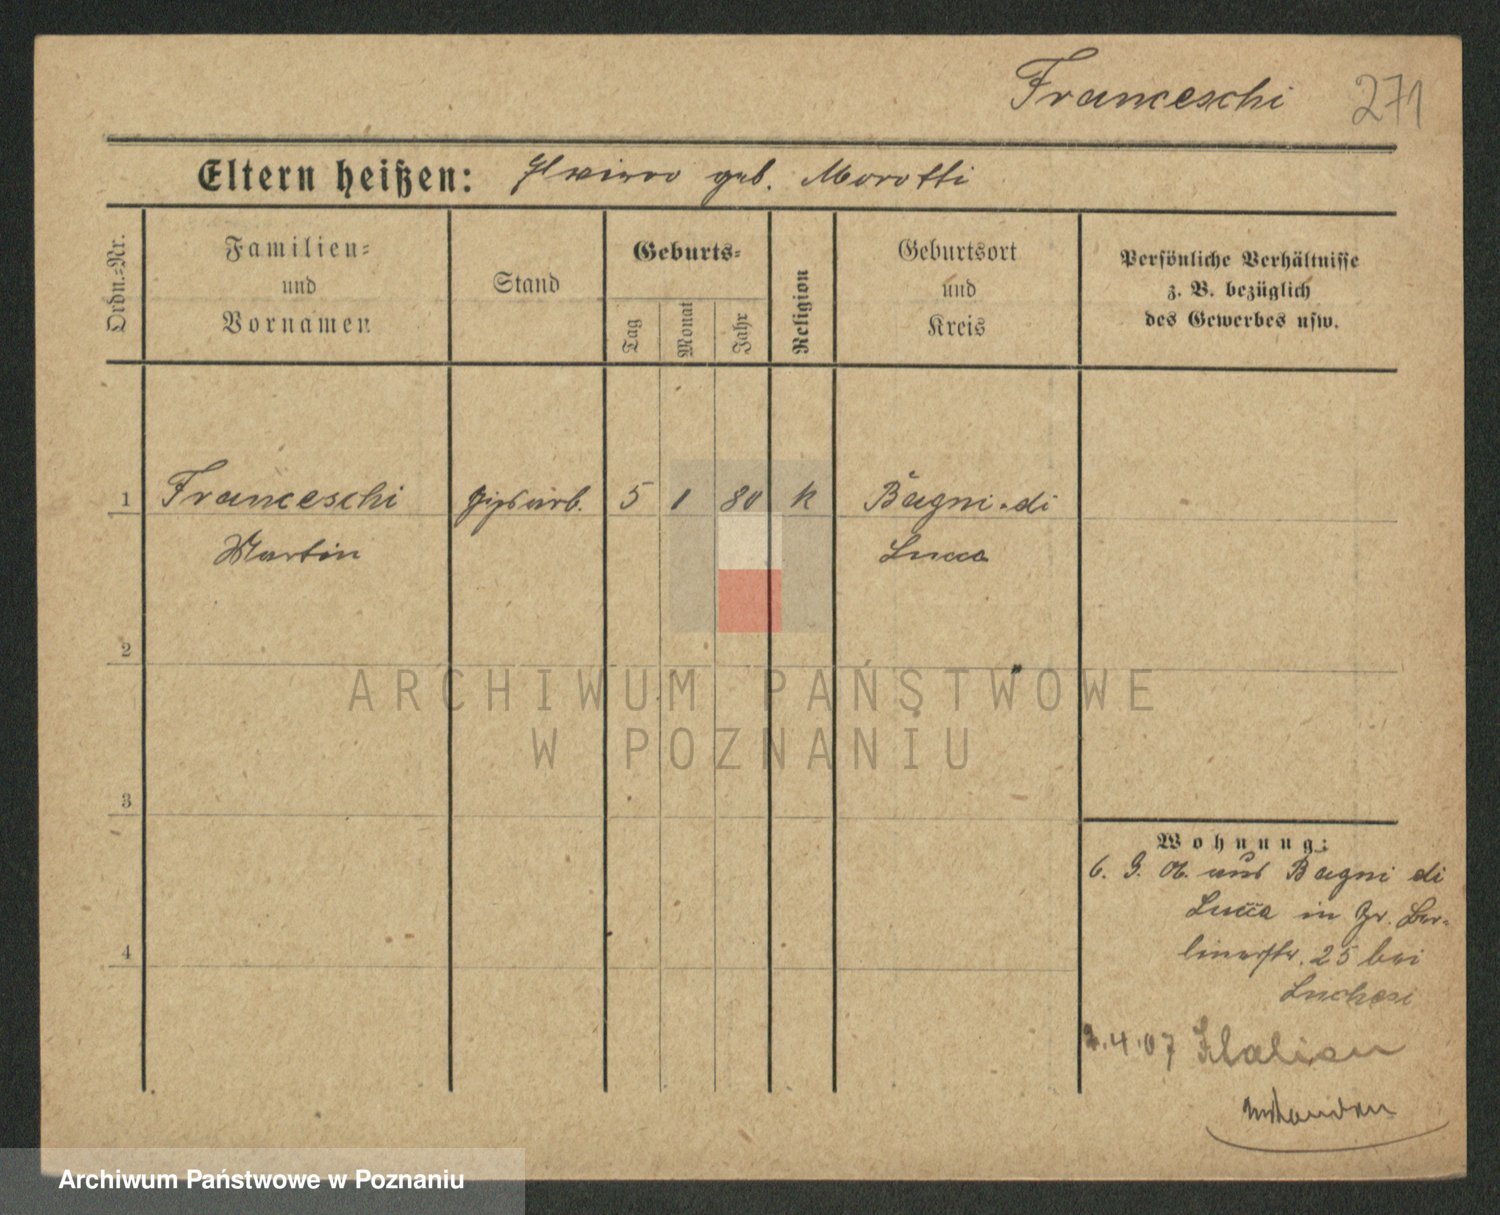 Franceschi 271
Eltern heißen: geb. Morotti
Ordn.=Nr.
Familien=
und
Vornamen
Stand
Geburts=
Tag
Monat
Jahr
Religion
Geburtsort
und
Kreis
Persönliche Verhältnisse
z. B. bezüglich
des Gewerbes usw.
1 Franceschi Gipsarb. 5 1 80 k Bagni-di
Martin Lucca
2
ARCHIWUM PAŃSTWOWE
W POZNANIU
3
Wohnung:
6. aus Bagni di
Lucca in Gr. Ber-
linerstr. 25 bei
4
Luchesi
4.07 Italien
Archiwum Państwowe w Poznaniu